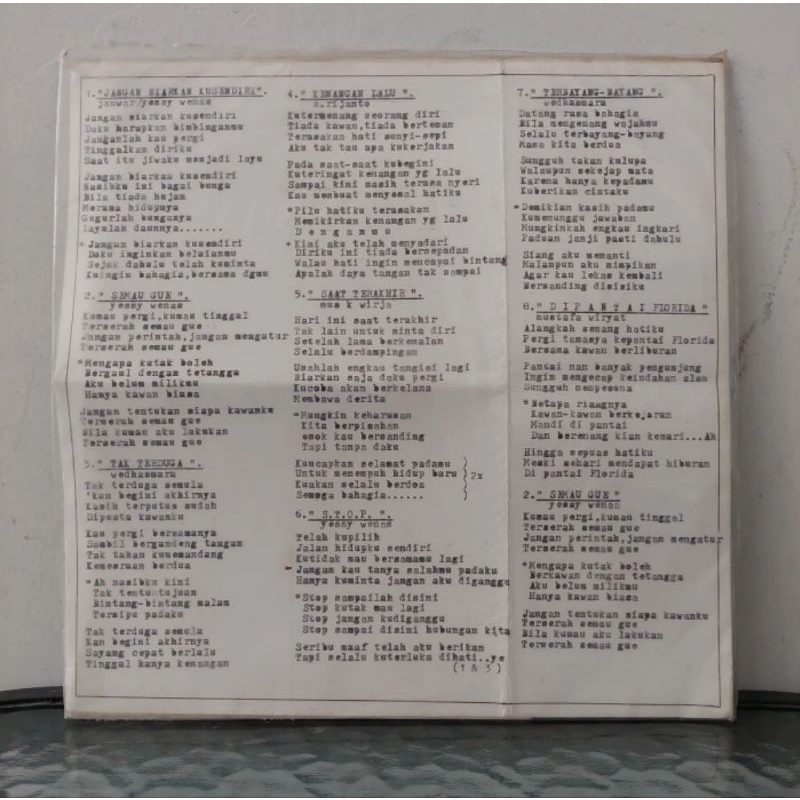 1."JANGAN BIARKAN KUSENDIRI".
janwar/yessy wenas
Jangan biarkan kusendiri
Daku harapkan bimbinganmu
Janganlah kau pergi
Tinggalkan diriku
Saat itu jiwaku menjadi layu
Jangan biarkan kusendiri
Nasibku ini bagai bunga
Bila tiada hujan
Merana hidupnya
Gugurlah bunganya
Layulah daunnya.......
*Jangan biarkan kusendiri
Daku inginkan belaianmu
Sejak dahulu telah kuminta
Kuingin bahagia,bersama dgmu
2." SEMAU GUE ".
yessy wenas
Kumau pergi,kumau tinggal
Terserah semau gue
Jangan perintah,jangan mengatur
Terserah semau gue
*Mengapa kutak boleh
Bergaul dengan tetangga
Aku belum milikmu
Hanya kawan biasa
Jangan tentukan siapa kawanku
Terserah semau gue
Bila kumau aku lakukan
Terserah semau gue
3." TAK TERDUGA ".
wedhasmara
Tak terduga semula
'kan begini akhirnya
Kasih terputus sudah
Dipesta kawanku
Kau pergi bersamanya
Sambil bergandeng tangan
Tak tahan kumemandang
Kemesraan berdua
*Ah nasibku kini
Tak tentu tujuan
Bintang-bintang malam
Tersipu padaku
Tak terduga semula
Kan begini akhirnya
Sayang cepat berlalu
Tinggal hanya kenangan
4." KENANGAN LALU ".
s.rijanto
Kutermenung seorang diri
Tiada kawan,tiada berteman
Terasakan hati sunyi-sepi
Aku tak tau apa kukerjakan
Pada saat-saat kubegini
Kuteringat kenangan yg lalu
Sampai kini masih terasa nyeri
Kau membuat menyesal hatiku
*Pilu hatiku terasakan
Memikirkan kenangan yg lalu
D e n g a n m u
*Kini aku telah menyadari
Diriku ini tiada bersepadan
Walau hati ingin mencapai bintang
Apalah daya tangan tak sampai
5." SAAT TERAKHIR ".
mus k wirja
Hari ini saat terakhir
Tak lain untuk minta diri
Setelah lama berkenalan
Selalu berdampingan
Usahlah engkau tangisi lagi
Biarkan saja daku pergi
Kucoba akan berkelana
Membawa derita
*Mungkin keharusan
Kita berpisahan
esok kau bersanding
Tapi tanpa daku
Kuucapkan selamat padamu
Untuk menempuh hidup baru
Kuakan selalu berdoa
Semoga bahagia......
2x
6." S.T.O.P. ".
yessy wenas
Telah kupilih
Jalan hidupku sendiri
Kutidak mau bersamamu lagi
Jangan kau tanya salahmu padaku
Hanya kuminta jangan aku diganggu
*Stop sampailah disini
Stop kutak mau lagi
Stop jangan kudiganggu
Stop sampai disini hubungan kita
Seribu maaf telah aku berikan
Tapi selalu kuterluka dihati..ye
(1 & 3)
7." TERBAYANG-BAYANG ".
wedhasmara
Datang rasa bahagia
Bila mengenang wajahmu
Selalu terbayang-bayang
Masa kita berdua
Sungguh takan kulupa
Walaupun sekejap mata
Karena hanya kepadamu
Kuberikan cintaku
*Demikian kasih padamu
Kumenunggu jawaban
Mungkinkah engkau ingkari
Paduan janji pasti dahulu
Siang aku menanti
Malampun aku mimpikan
Agar kau lekas kembali
Bersanding disisiku
8." D I P A N T A I FLORIDA "
mustafa wiryat
Alangkah senang hatiku
Pergi tamasya kepantai Florida
Bersama kawan berliburan
Pantai nan banyak pengunjung
Ingin mengecap keindahan alam
Sungguh mempesona
*Betapa riangnya
Kawan-kawan berkejaran
Mandi di pantai
Dan berenang kian kemari...Ah
Hingga sepuas hatiku
Meski sehari mendapat hiburan
Di pantai Florida
2." SEMAU GUE "
yessy wenas
Kumau pergi,kumau tinggal
Terserah semau gue
Jangan perintah,jangan mengatur
Terserah semau gue
*Mengapa kutak boleh
Berkawan dengan tetangga
Aku belum milikmu
Hanya kawan biasa
Jangan tentukan siapa kawanku
Terserah semau gue
Bila kumau aku lakukan
Terserah semau gue